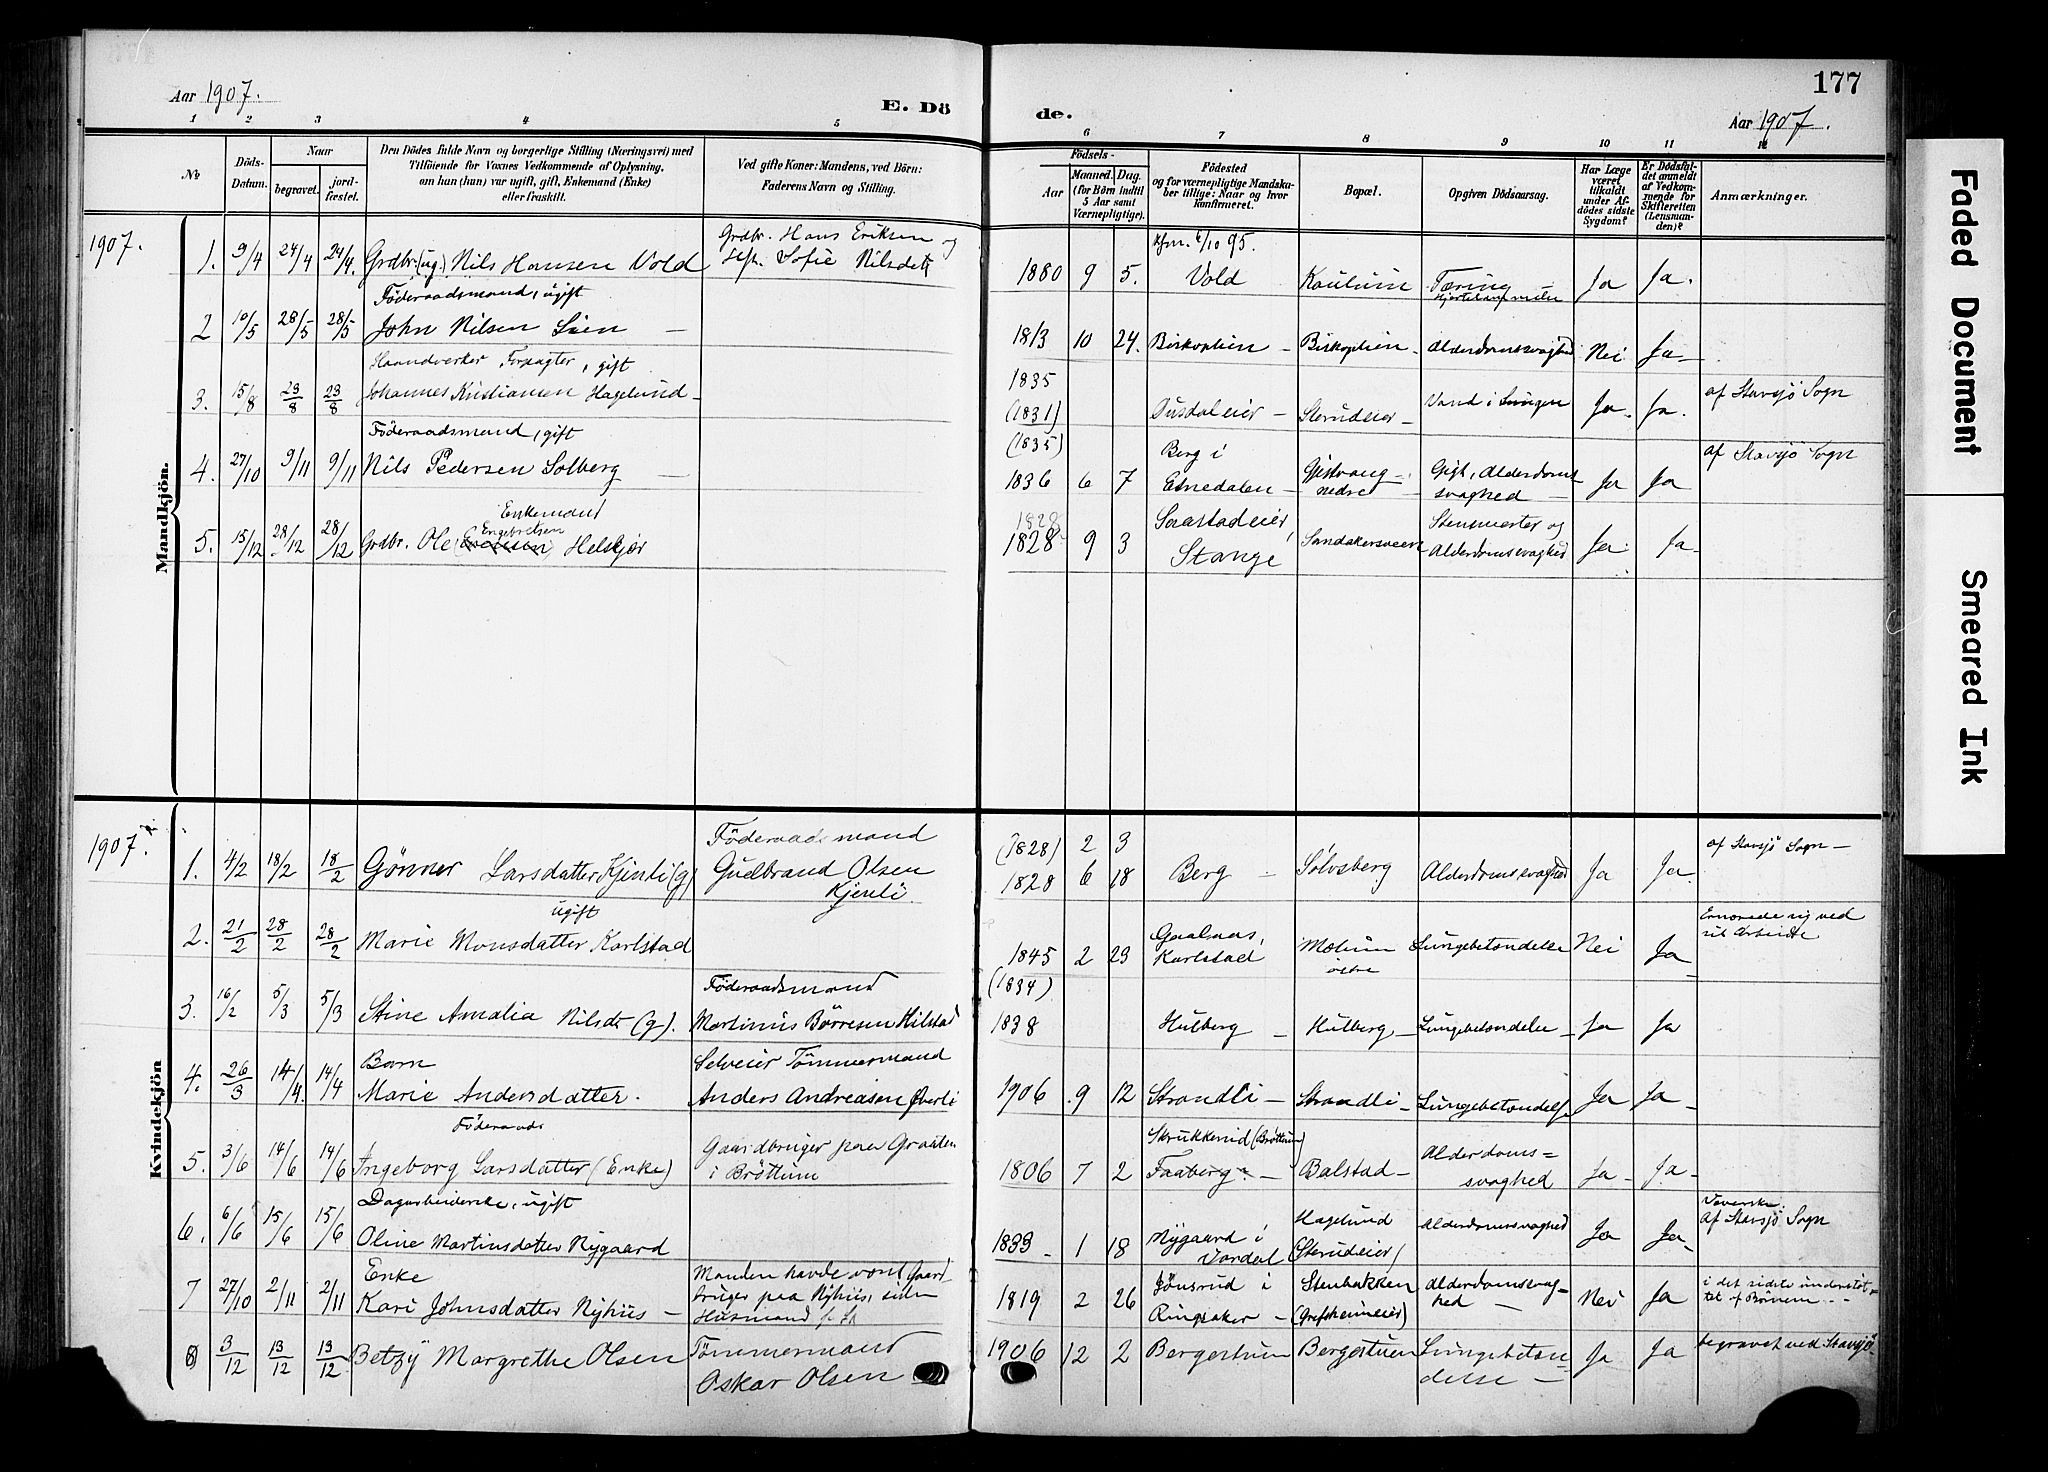 177
Aar 1907.
E. Dö
de.
Aar 1907.
1 2 3 4 5 6 7 8 9 10 11 12
No
Döds-
Datum.
Naar
begravet.
jord-
fæstet.
Den Dödes fulde Navn og borgerlige Stilling (Næringsvei) med
Tilföiende for Voxnes Vedkommende af Oplysning,
om han (hun) var ugift, gift, Enkemand (Enke)
eller fraskilt.
Ved gifte Koner: Mandens, ved Börn:
Faderens Navn og Stilling.
Födsels-
Aar
Maaned. Dag.
(for Börn indtil
5 Aar samt
Værnepligtige).
Födested
og for værnepligtige Mandska-
ber tillige: Naar og hvor
konfirmeret.
Bopæl.
Opgiven Dödsaarsag.
Har Læge
været
tilkaldt
under Af-
dödes sidste
Sygdom?
Er Dödsfal-
det anmeldt
af Vedkom-
mende for
Skifteretten
(Lensman-
den)?
Anmærkninger.
Mandkjön.
1907.
Grdbr. Hans Eriksen og
Kfm. 6/10 95.
1. 9/4 24/4 24/4. Grdbr. (ug.) Nils Hansen Vold Sofie Nilsdtr 1880 9 5. Vold Taring Ja Ja.
Föderaadsmand, ugift
2 10/5 28/5 28/5 John Nilsen Lien — 1813 10 24. Biskoplien – Biskoplien – Alderdomssvaghed Nei Ja –
Haandverker Forpagter, gift
1835
3. 15/8 23/8 23/8 Johannes Kristiansen Hagelund – (1831) Dusdaleier – Sterudeier – Vand i Lungen Ja – Ja. af Stavsjö Sogn
Föderaadsmand, gift
(1835) Berg i
4. 27/10 9/11 9/11 Nils Pedersen Solberg — 1836 6 7 Etnedalen – nedre – Gigt, Alderdoms
svaghed — Ja Ja af Stavsjö Sogn
Enkemand
Engebretsen
1828 Saastadeier,
5. 15/12 28/12 28/12 Grdbr. Ole Helskjör 1828 9 3 Stange Sandakersveen Alderdomssvaghed Ja Ja –
Kvindekjön
1907.
Föderaadsmand
(1828) 2 3
1. 4/2 18/2 18/2 Gönner Larsdatter Kjenli (g) Gudbrand Olsen
Kjenli 1828 6 18 Berg – Sölvsberg Alderdomssvaghed Ja Ja. af Stavsjö Sogn –
ugift
2. 21/2 28/2 28/2 Marie Monsdatter Karlstad 1845 2 23 Gaalaas,
Karlstad Moelum
östre Lungebetændelse Nei Ja – Ernærede sig ved
sit Arbeide
Föderaadsmand
(1834)
3. 16/2 5/3 5/3 Stine Amalia Nilsdt (g). Martinus Börresen Hilstad 1838 Hulberg – Hulberg – Lungebetændelse – Ja Ja
Barn
Selveier Tömmermand
4. 26/3 14/4. 14/4 Marie Andersdatter. Anders Andreasen Överli 1906 9 12 Strandli – Strandli – Lungebetændelse Ja Ja –
Föderaads
Gaardbruger paa Graaten
Skrukkerud (Bröttum)
5. 3/6 14/6 14/6 Ingeborg Larsdatter (Enke) i Bröttum 1806 7 2 Faaberg – Balstad – Alderdoms=
svaghed Ja – Ja –
Dagarbeiderske, ugift
6. 6/6 15/6 15/6 Oline Martinsdatter Nygaard 1833 – 1 18 Nygaard i
Vardal Hagelund
(Sterudeier) Alderdomssvaghed Ja Ja – Væverske
Af Stavsjö Sogn
Enke
7 27/10 2/11 2/11 Kari Johnsdatter Nyhus – Manden havde været Gaard
bruger paa Nyhus, siden
Husmand 1819 2 26 Jönsrud i
Ringsaker – Stenbakken
(Grefsheimeier) Alderdomssvag-
hed — Nei Ja i det sidste understöt-
tet af Börnene –
8) 3/12 13/12 13/12. Betzy Margrethe Olsen Tömmermand
Oskar Olsen 1906 12 2 Bergestuen Bergestuen Lungebetæn=
delse — Ja Ja begravet ved Stavsjö –
Faded Document
Smeared Ink